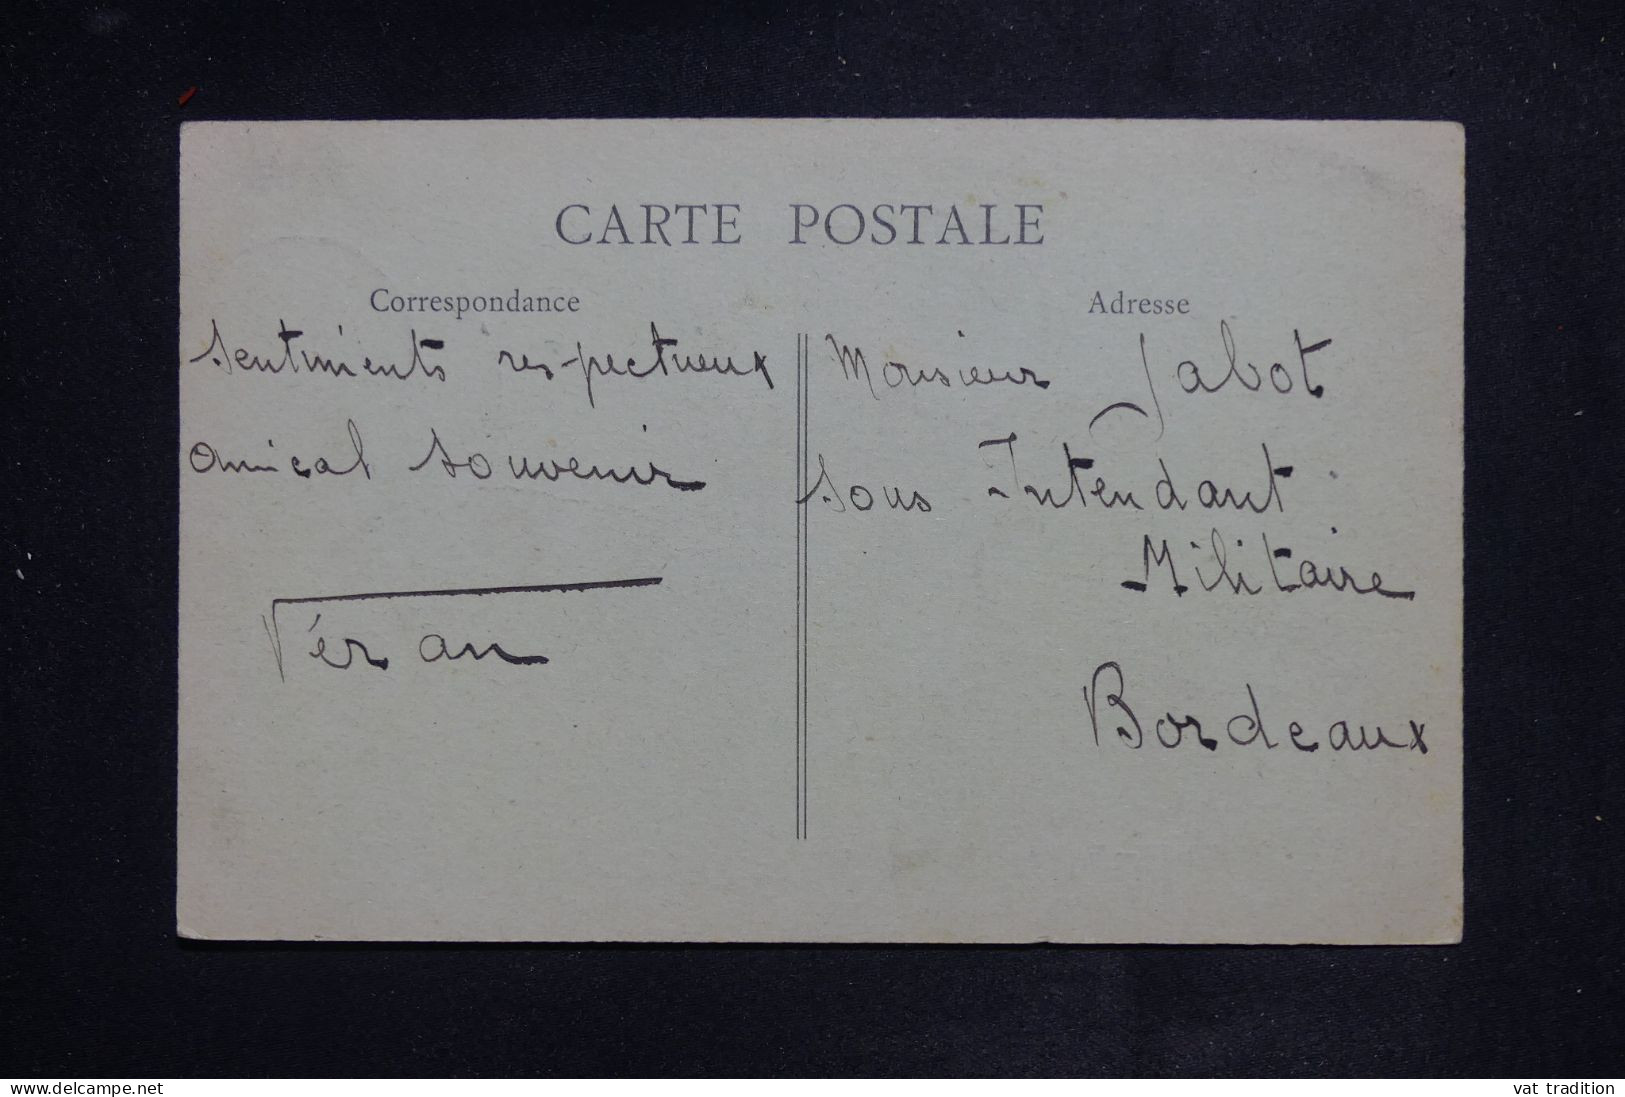 CARTE POSTALE
Correspondance
Sentiments respectueux
amical souvenir
Véran
Adresse
Monsieur Jabot
Sous Intendant
Militaire
Bordeaux
www.delcampe.net
vat tradition